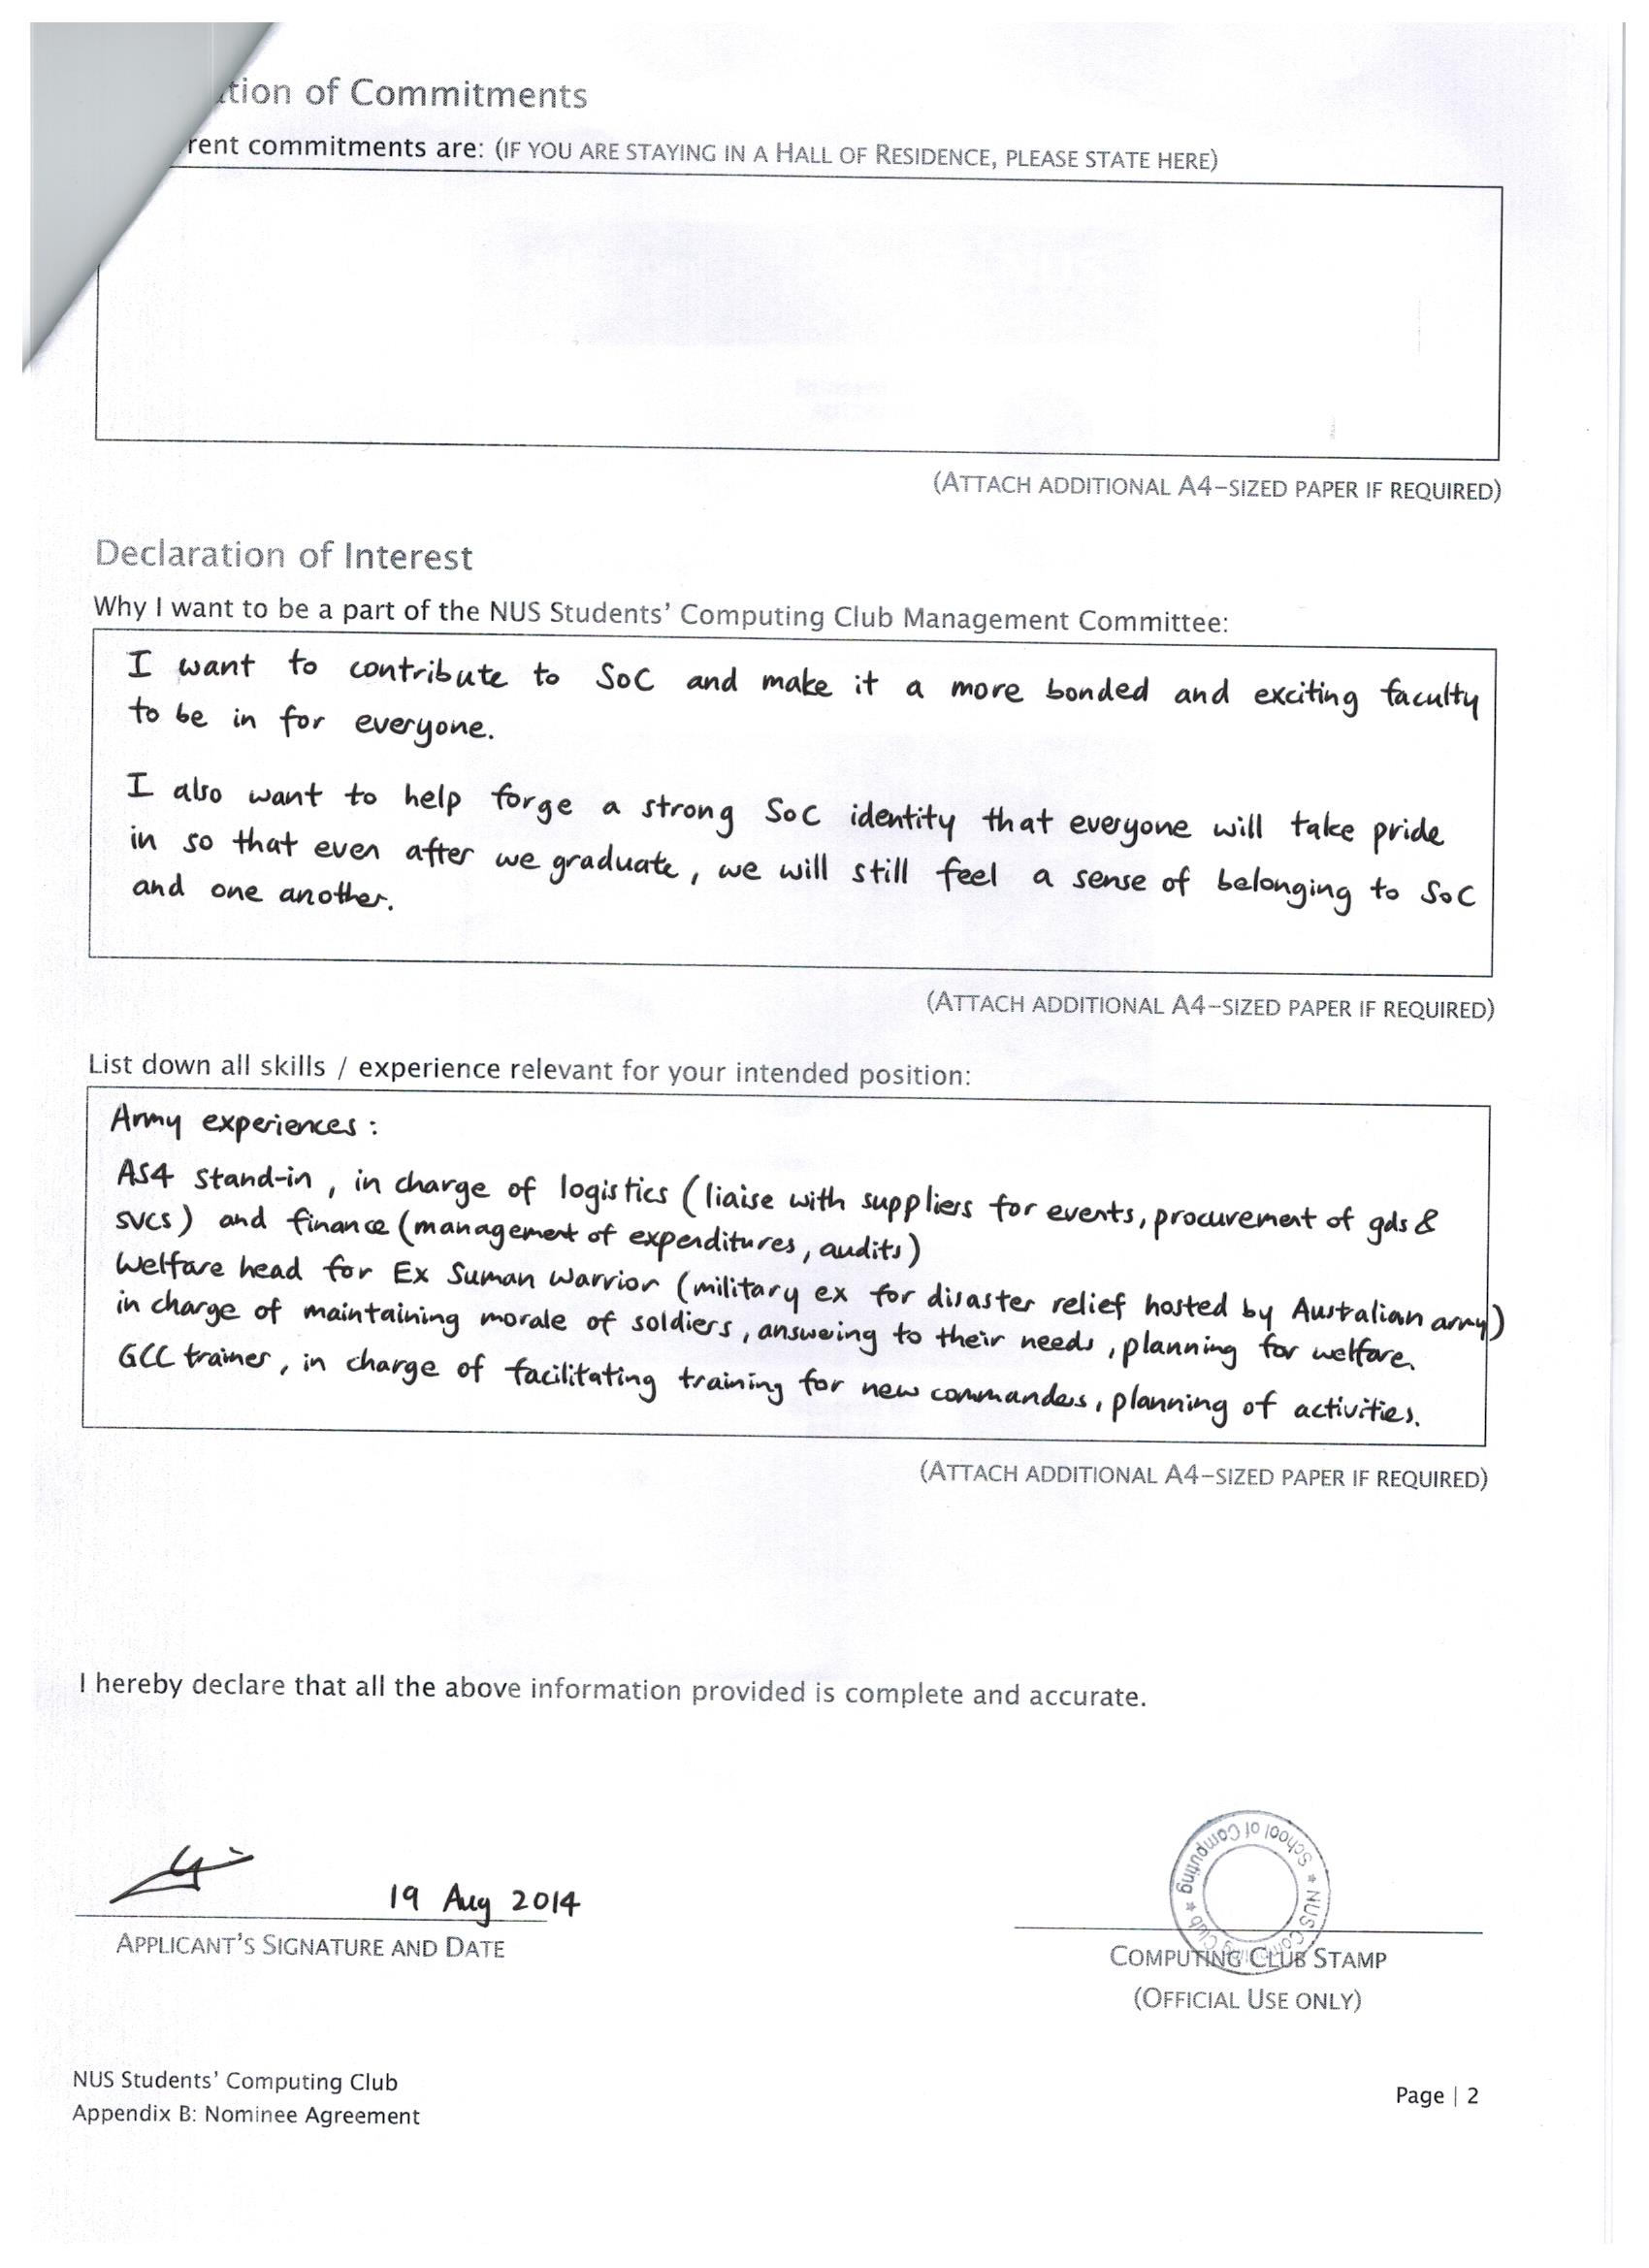 tion of Commitments
rent commitments are: (IF YOU ARE STAYING IN A HALL OF RESIDENCE, PLEASE STATE HERE)
(ATTACH ADDITIONAL A4-SIZED PAPER IF REQUIRED)
Declaration of Interest
Why I want to be a part of the NUS Students' Computing Club Management Committee:
I want to contribute to SoC and make it a more bonded and exciting faculty
to be in for everyone.
I also want to help forge a strong SoC identity that everyone will take pride
in so that even after we graduate, we will still feel a sense of belonging to SoC
and one another.
(ATTACH ADDITIONAL A4-SIZED PAPER IF REQUIRED)
List down all skills / experience relevant for your intended position:
Army experiences:
AS4 stand-in, in charge of logistics (liaise with suppliers for events, procurement of gds &
svcs) and finance (management of expenditures, audits)
Welfare head for Ex Suman Warrior (military ex for disaster relief hosted by Australian army)
in charge of maintaining morale of soldiers, answering to their needs, planning for welfare.
GCC trainer, in charge of facilitating training for new commanders, planning of activities.
(ATTACH ADDITIONAL A4-SIZED PAPER IF REQUIRED)
I hereby declare that all the above information provided is complete and accurate.
19 Aug 2014
APPLICANT'S SIGNATURE AND DATE
School of Computing * NUS Computing Club *
COMPUTING CLUB STAMP
(OFFICIAL USE ONLY)
NUS Students' Computing Club
Appendix B: Nominee Agreement
Page | 2